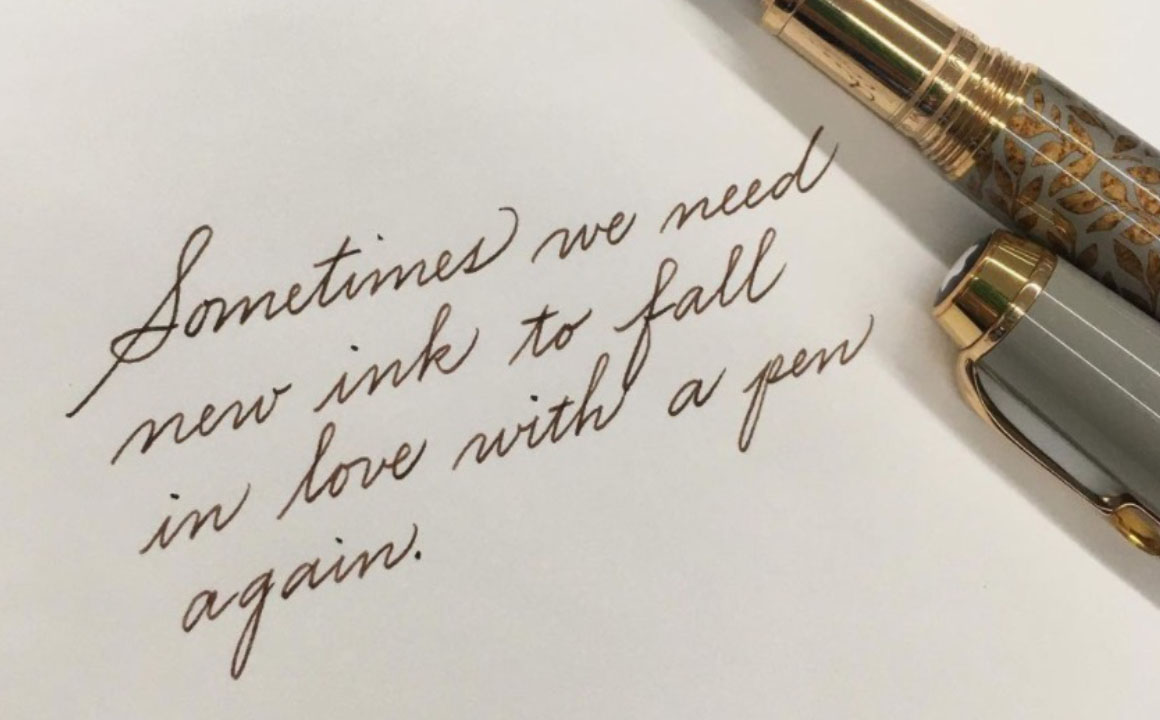 Sometimes we need
new ink to fall
in love with a pen
again.